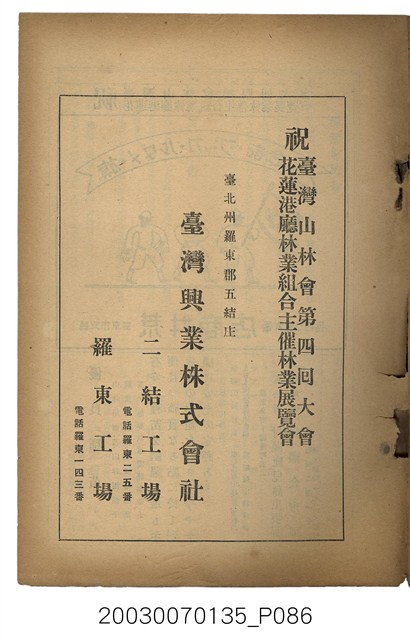 祝
臺灣山林會第四回大會
花蓮港廳林業組合主催林業展覽會
臺北州羅東郡五結庄
臺灣興業株式會社
二結工場
電話羅東二五番
羅東工場
電話羅東一四三番
20030070135_P086